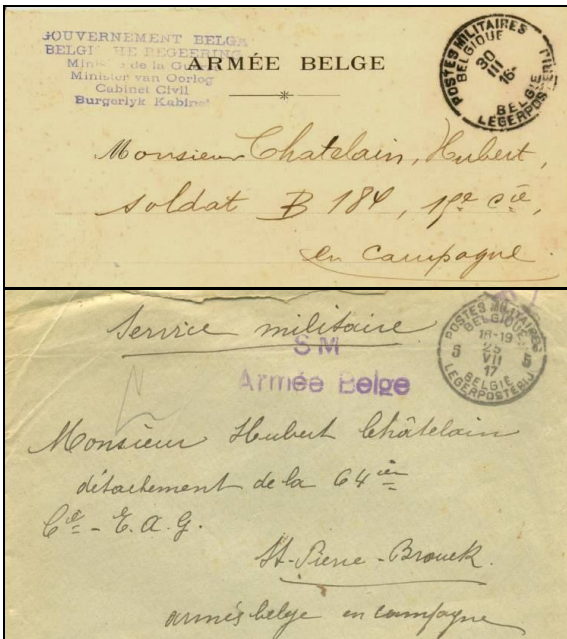 GOUVERNEMENT BELGE
BELGISCHE REGEERING
Ministre de la Guerre
Minister van Oorlog
Cabinet Civil
Burgerlyk Kabinet
ARMÉE BELGE
POSTES MILITAIRES
BELGIQUE
30
III
16
BELGIE
LEGERPOSTERIJ
Monsieur Chatelain, Hubert,
soldat B 184, 15e Cie,
en campagne.
Service militaire
SM
Armée Belge
POSTES MILITAIRES
BELGIQUE
18-19
5 25 5
VII
17
BELGIE
LEGERPOSTERIJ
Monsieur Hubert Châtelain
détachement de la 64ième
Cie - E.A.G.
St-Pierre-Brouck.
armée belge en campagne